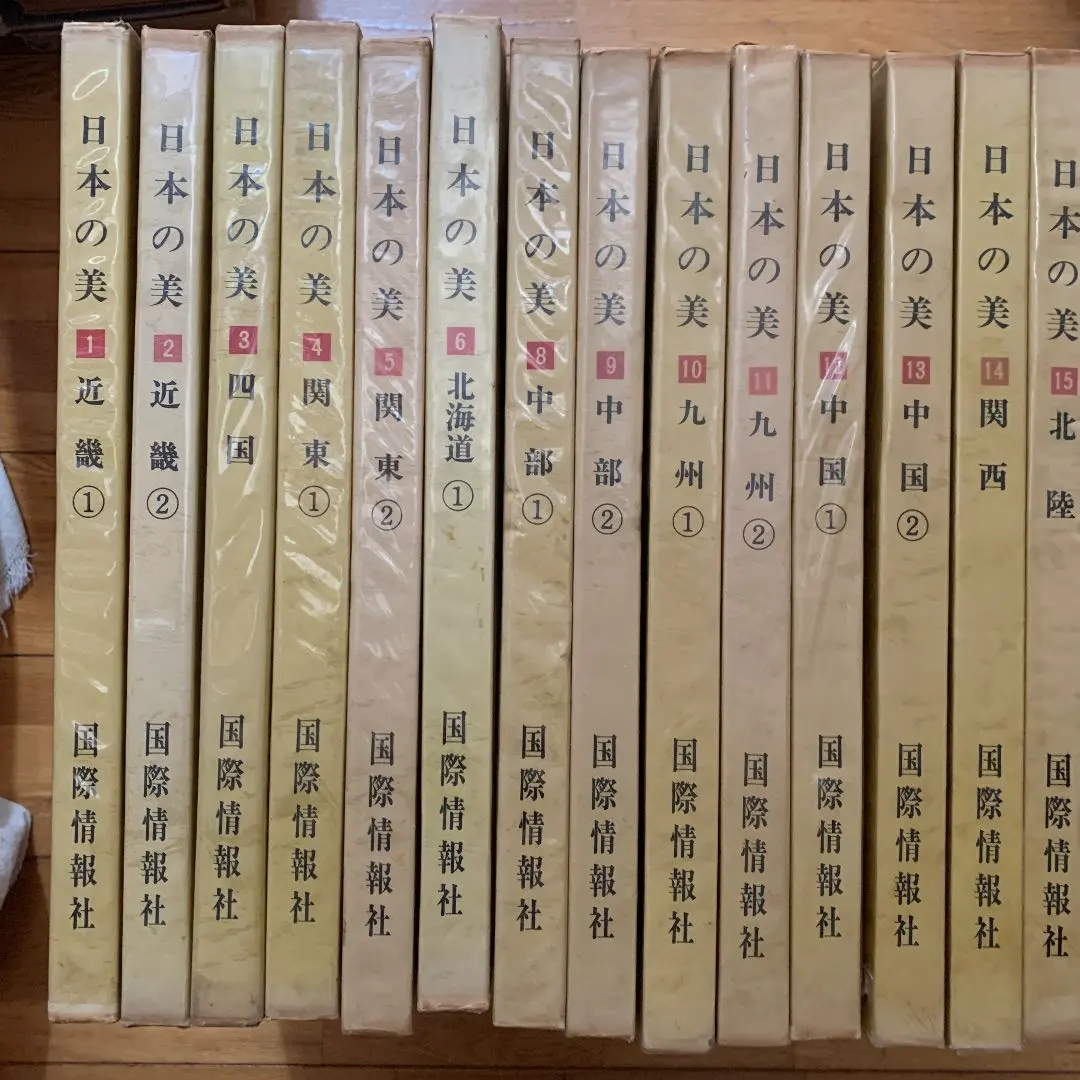 日本の美 1 近畿 ① 国際情報社
日本の美 2 近畿 ② 国際情報社
日本の美 3 四国 国際情報社
日本の美 4 関東 ① 国際情報社
日本の美 5 関東 ② 国際情報社
日本の美 6 北海道 ① 国際情報社
日本の美 8 中部 ① 国際情報社
日本の美 9 中部 ② 国際情報社
日本の美 10 九州 ① 国際情報社
日本の美 11 九州 ② 国際情報社
日本の美 12 中国 ① 国際情報社
日本の美 13 中国 ② 国際情報社
日本の美 14 関西 国際情報社
日本の美 15 北陸 国際情報社